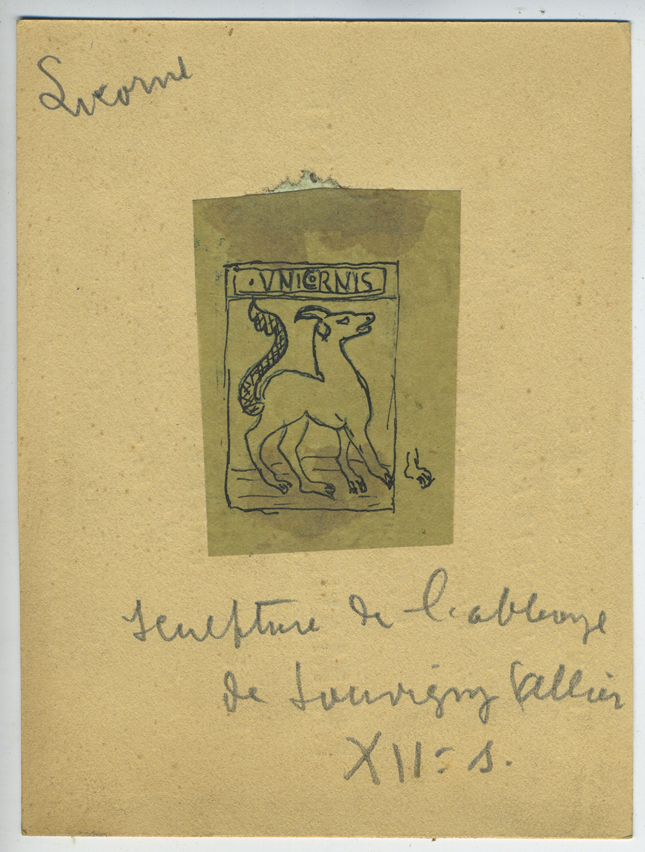 Licorne
·VNICORNIS
Sculpture de l'abbaye
de Souvigny (Allier
XIIe s.